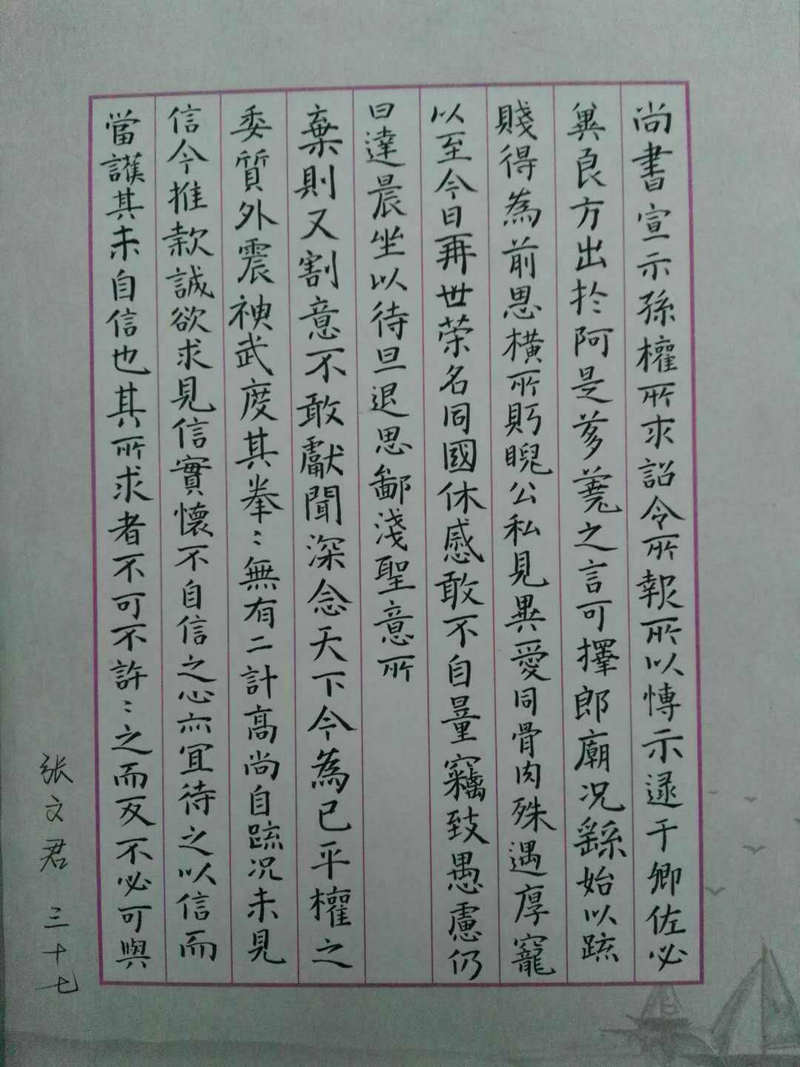 尚書宣示孫權所求詔令所報所以博示逯于卿佐必
冀良方出於阿是芻蕘之言可擇郎廟況繇始以疏
賤得為前恩橫所眄睨公私見異愛同骨肉殊遇厚寵
以至今日再世荣名同國休慼敢不自量竊致愚慮仍
日達晨坐以待旦退思鄙淺聖意所
棄則又割意不敢獻聞深念天下今為已平權之
委質外震神武度其拳〻無有二計高尚自疏況未見
信今推款誠欲求見信實懷不自信之心亦宜待之以信而
當護其未自信也其所求者不可不許〻之而反不必可與
张文君 三十七